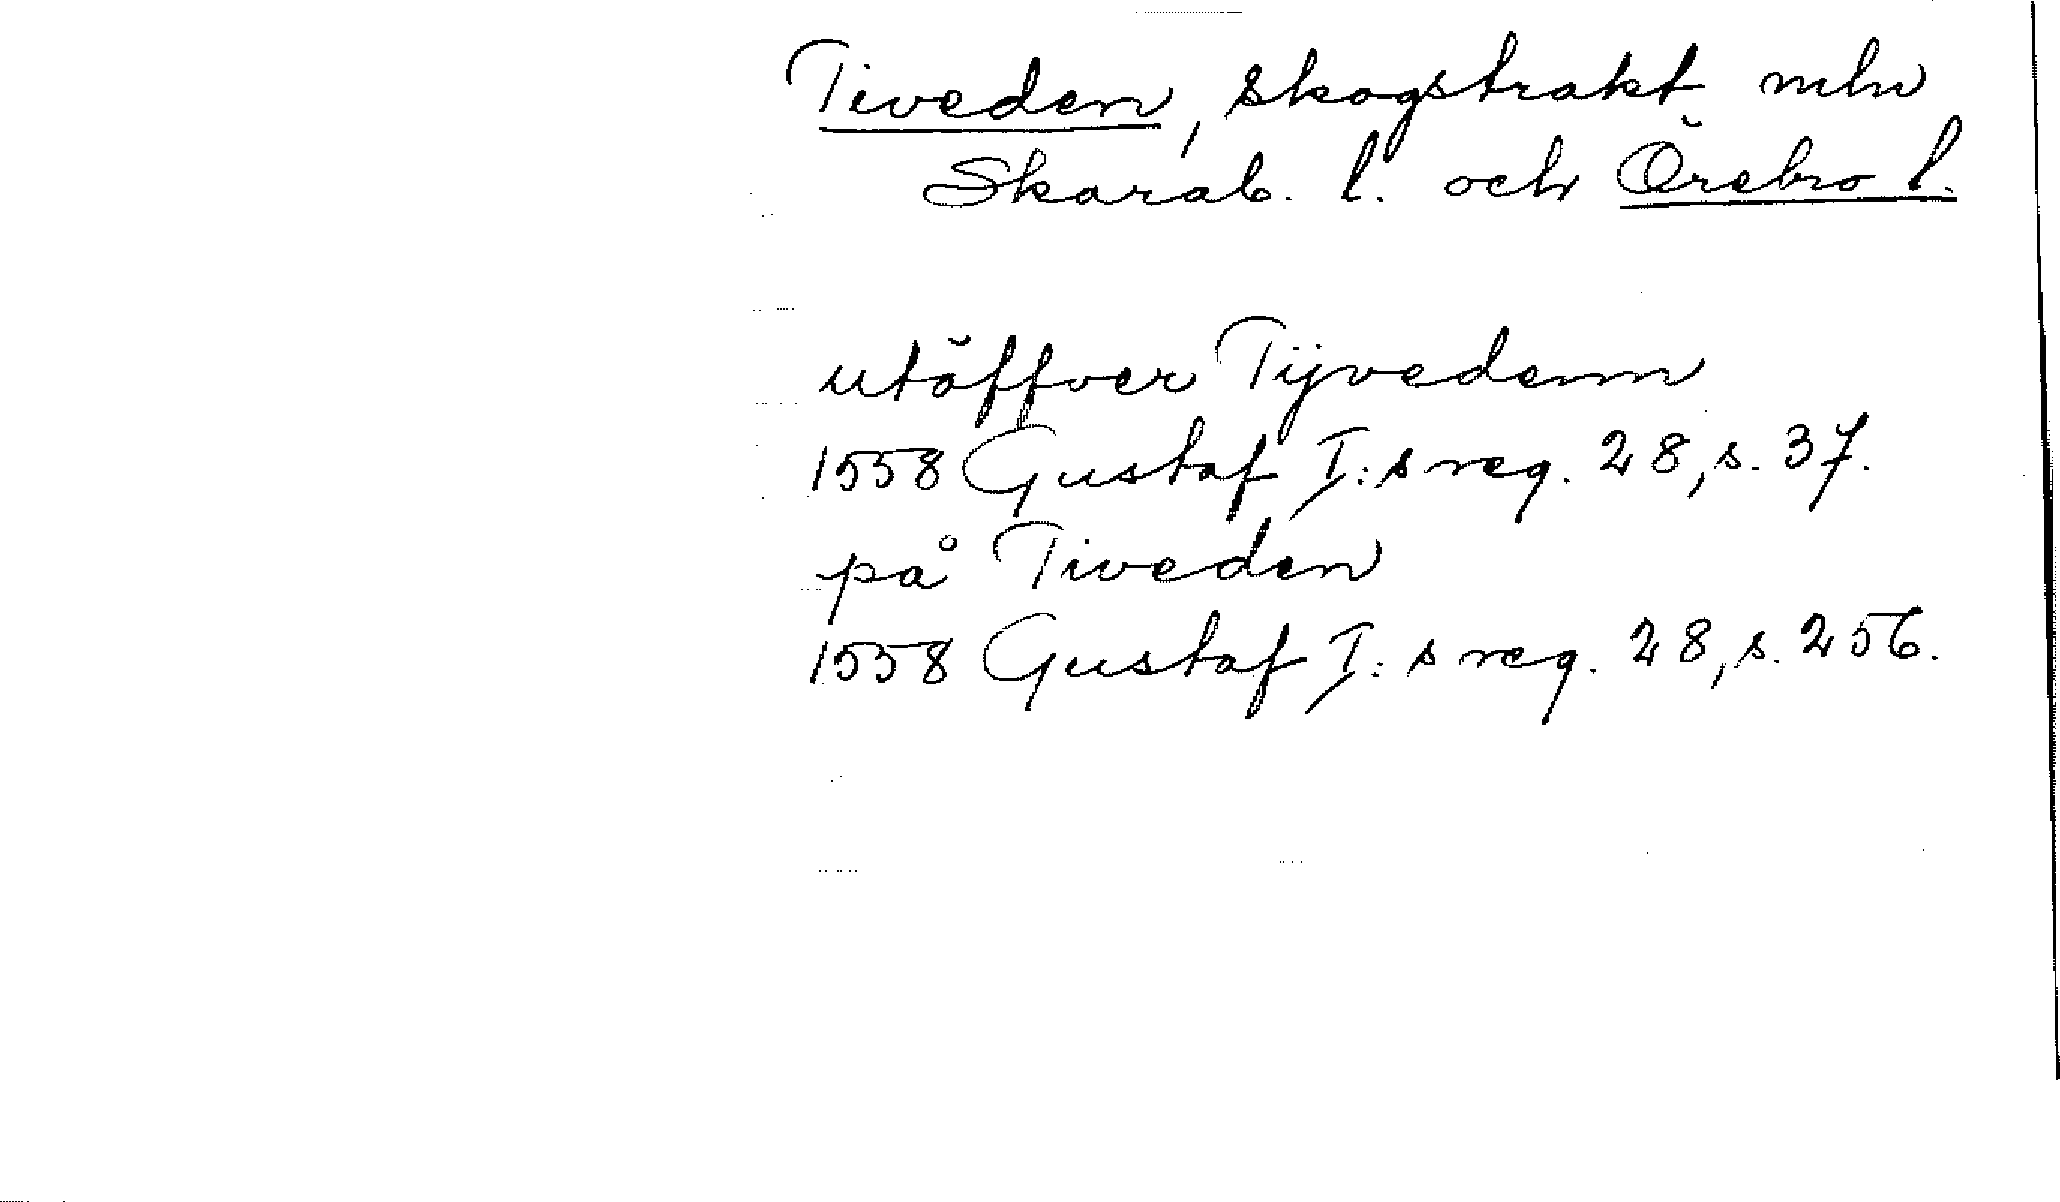 Tiveden, skogstrakt mln
Skarab. l. och Örebro l.
utöffver Tijvedenn
1558 Gustaf I:s reg. 28, s. 37.
på Tiveden
1558 Gustaf I:s reg. 28, s. 256.